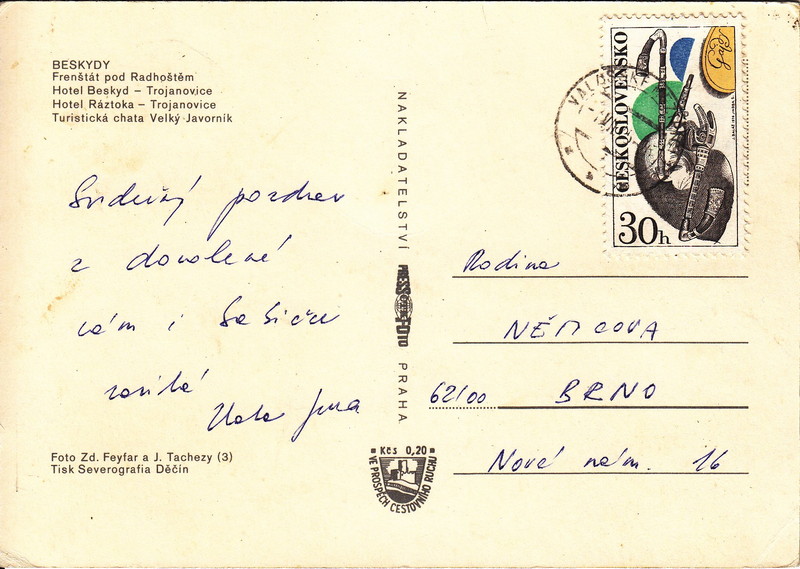 BESKYDY
Frenštát pod Radhoštěm
Hotel Beskyd – Trojanovice
Hotel Ráztoka – Trojanovice
Turistická chata Velký Javorník
Srdečný pozdrav
z dovolené
vám i
Foto Zd. Feyfar a J. Tachezy (3)
Tisk Severografia Děčín
NAKLADATELSTVÍ
PRESSFOTO
PRAHA
Kčs 0,20
VE PROSPĚCH CESTOVNÍHO RUCHU
ČESKOSLOVENSKO
30h
Rodina
NĚMCOVA
62100 BRNO
Nové nám. 16